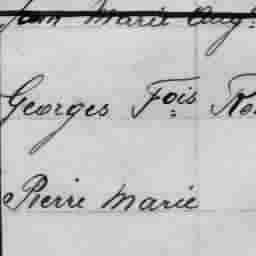 Jean Marie Aug
Georges Fois
Pierre Marie